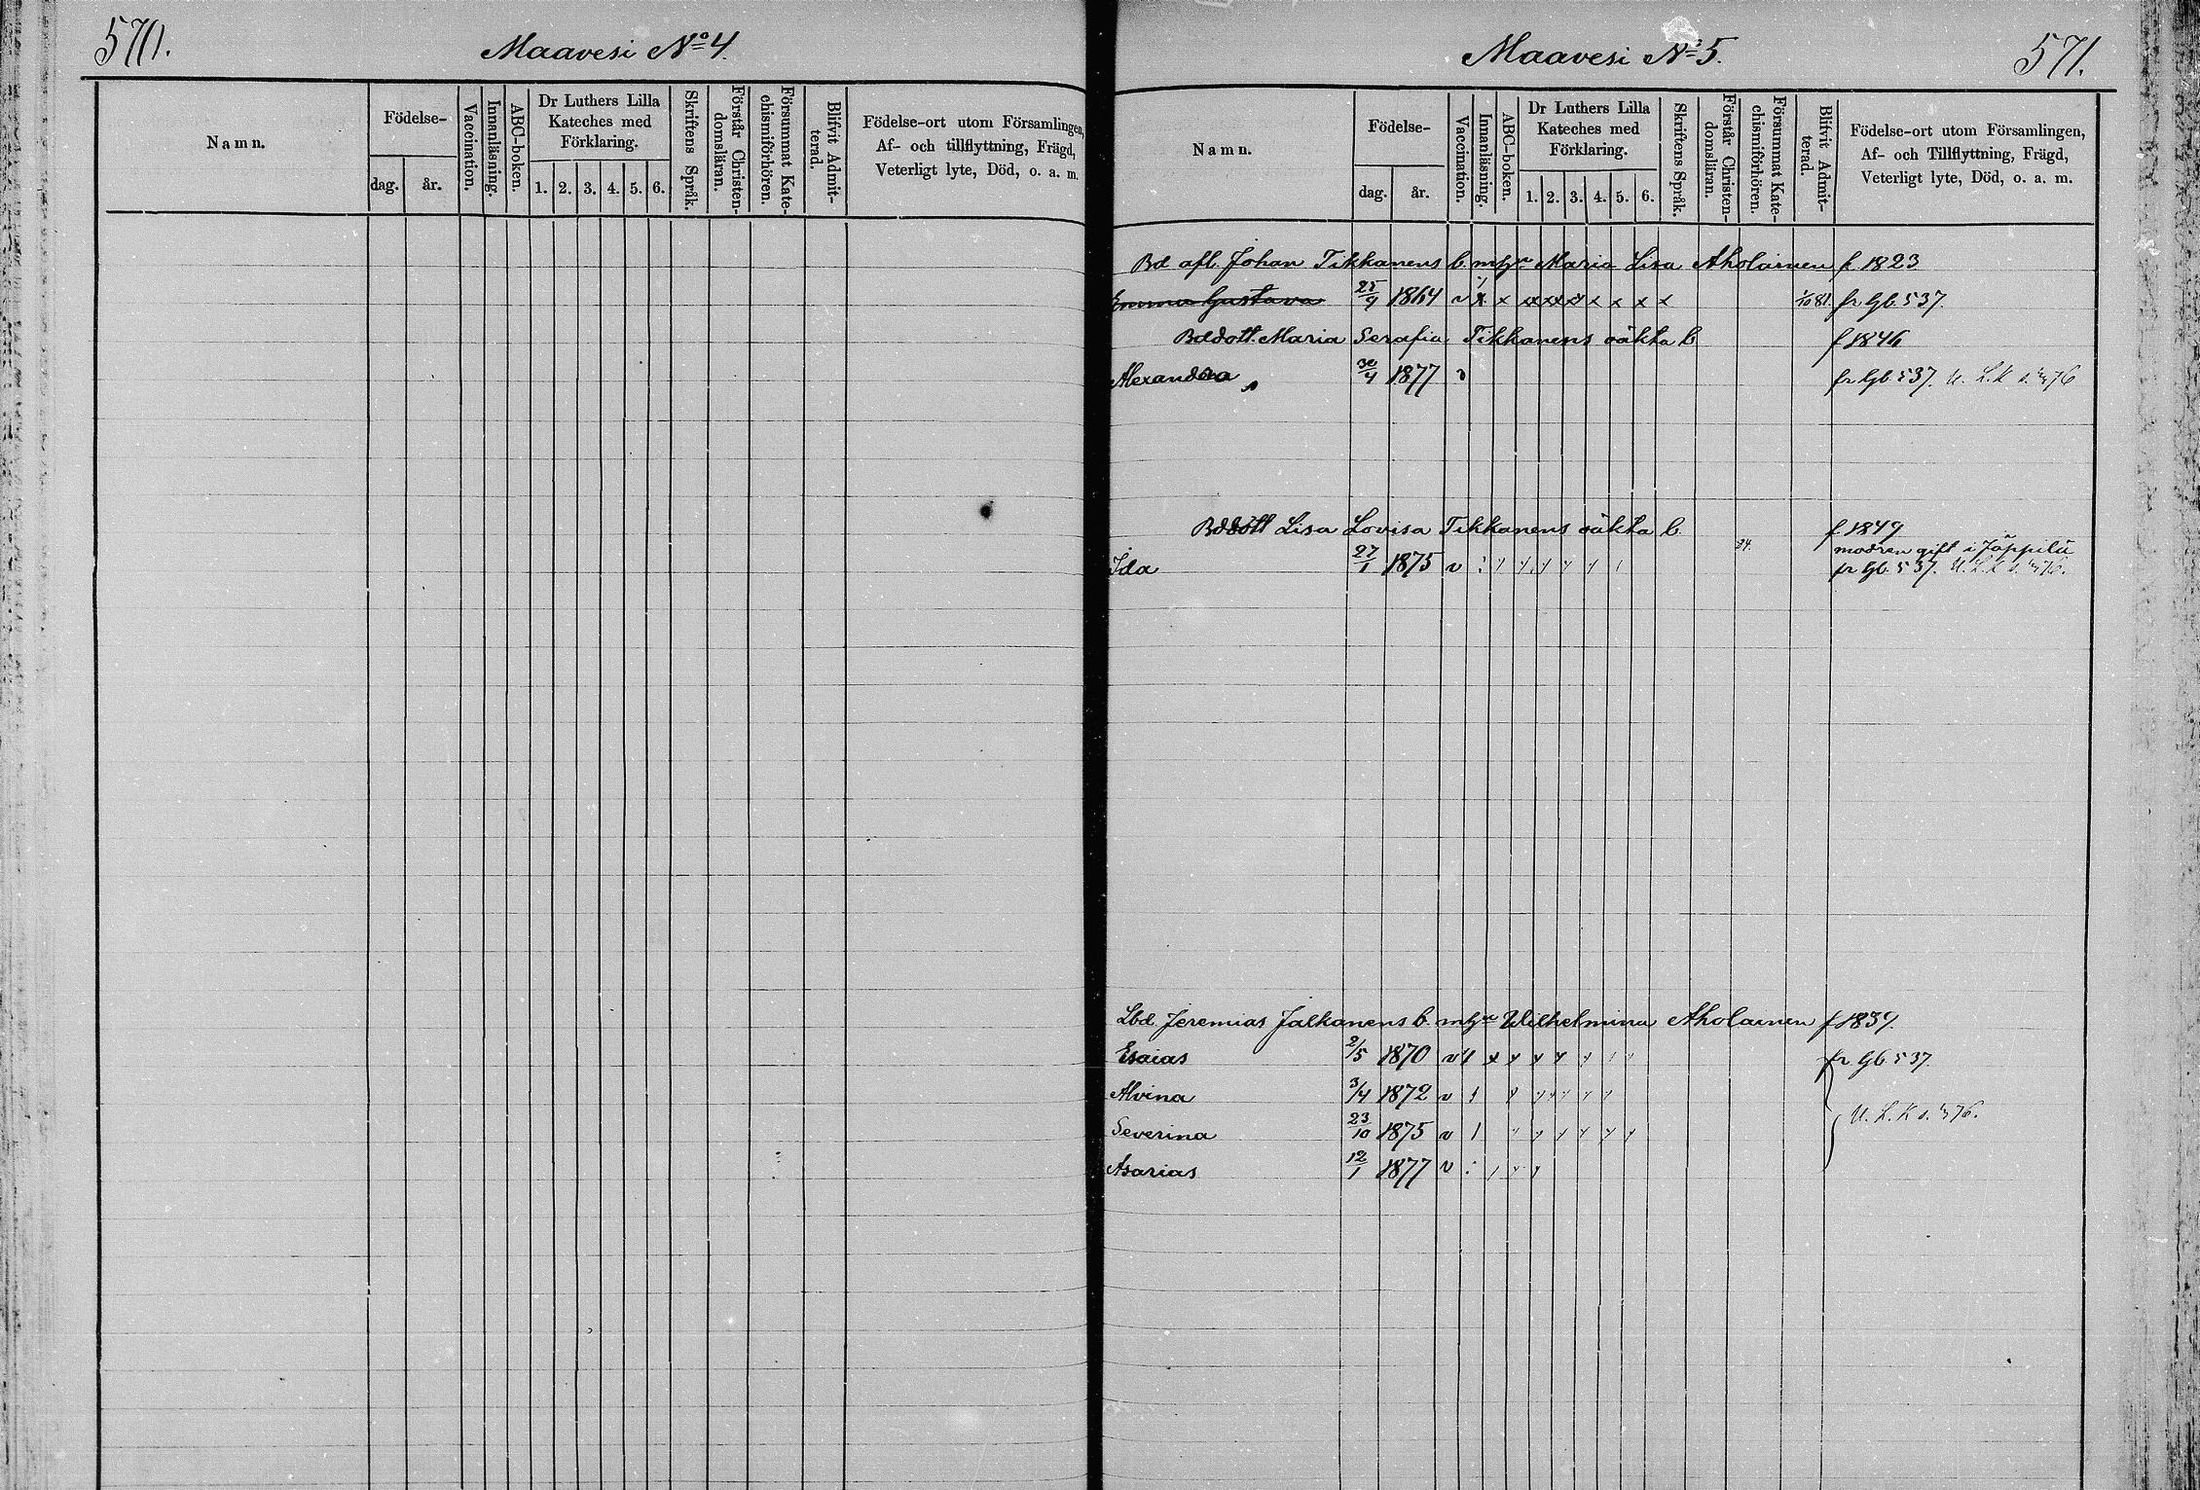 570.
Maavesi No 4.
Namn.
Födelse-
dag. år.
Vaccination.
Innanläsning.
ABC-boken.
Dr Luthers Lilla
Kateches med
Förklaring.
1. 2. 3. 4. 5. 6.
Skriftens Språk.
Förstår Christen-
domsläran.
Försummat Kate-
chismiförhören.
Blifvit Admit-
terad.
Födelse-ort utom Församlingen,
Af- och tillflyttning, Frägd,
Veterligt lyte, Död, o. a. m.
Maavesi No 5.
571.
Namn.
Födelse-
dag. år.
Vaccination.
Innanläsning.
ABC-boken.
Dr Luthers Lilla
Kateches med
Förklaring.
1. 2. 3. 4. 5. 6.
Skriftens Språk.
Förstår Christen-
domsläran.
Försummat Kate-
chismiförhören.
Blifvit Admit-
terad.
Födelse-ort utom Församlingen,
Af- och Tillflyttning, Frägd,
Veterligt lyte, Död, o. a. m.
Bd afl. Johan Tikkanens b. m hu Maria Lisa Aholainen f 1823
Emma Gustava 25/9 1864 v x x x x x x x x x 1/10 81. fr Gb. 537.
Bddott. Maria Serafia Tikkanens oäkta b f 1846
Alexandra 30/4 1877 v fr Gb. 537. U. L. K.
Bddott Lisa Lovisa Tikkanens oäkta b. f 1849
84. modren gift i Jäppilä
Ida 27/1 1875 v fr Gb. 537. U. L. K.
Lbd. Jeremias Jalkanens b. m hu Wilhelmina Aholainen f 1839.
Esaias 2/5 1870 v x x x x fr Gb 537.
Alvina 3/4 1872 v
U. L. K
Severina 23/10 1875 v
Asarias 12/1 1877 v